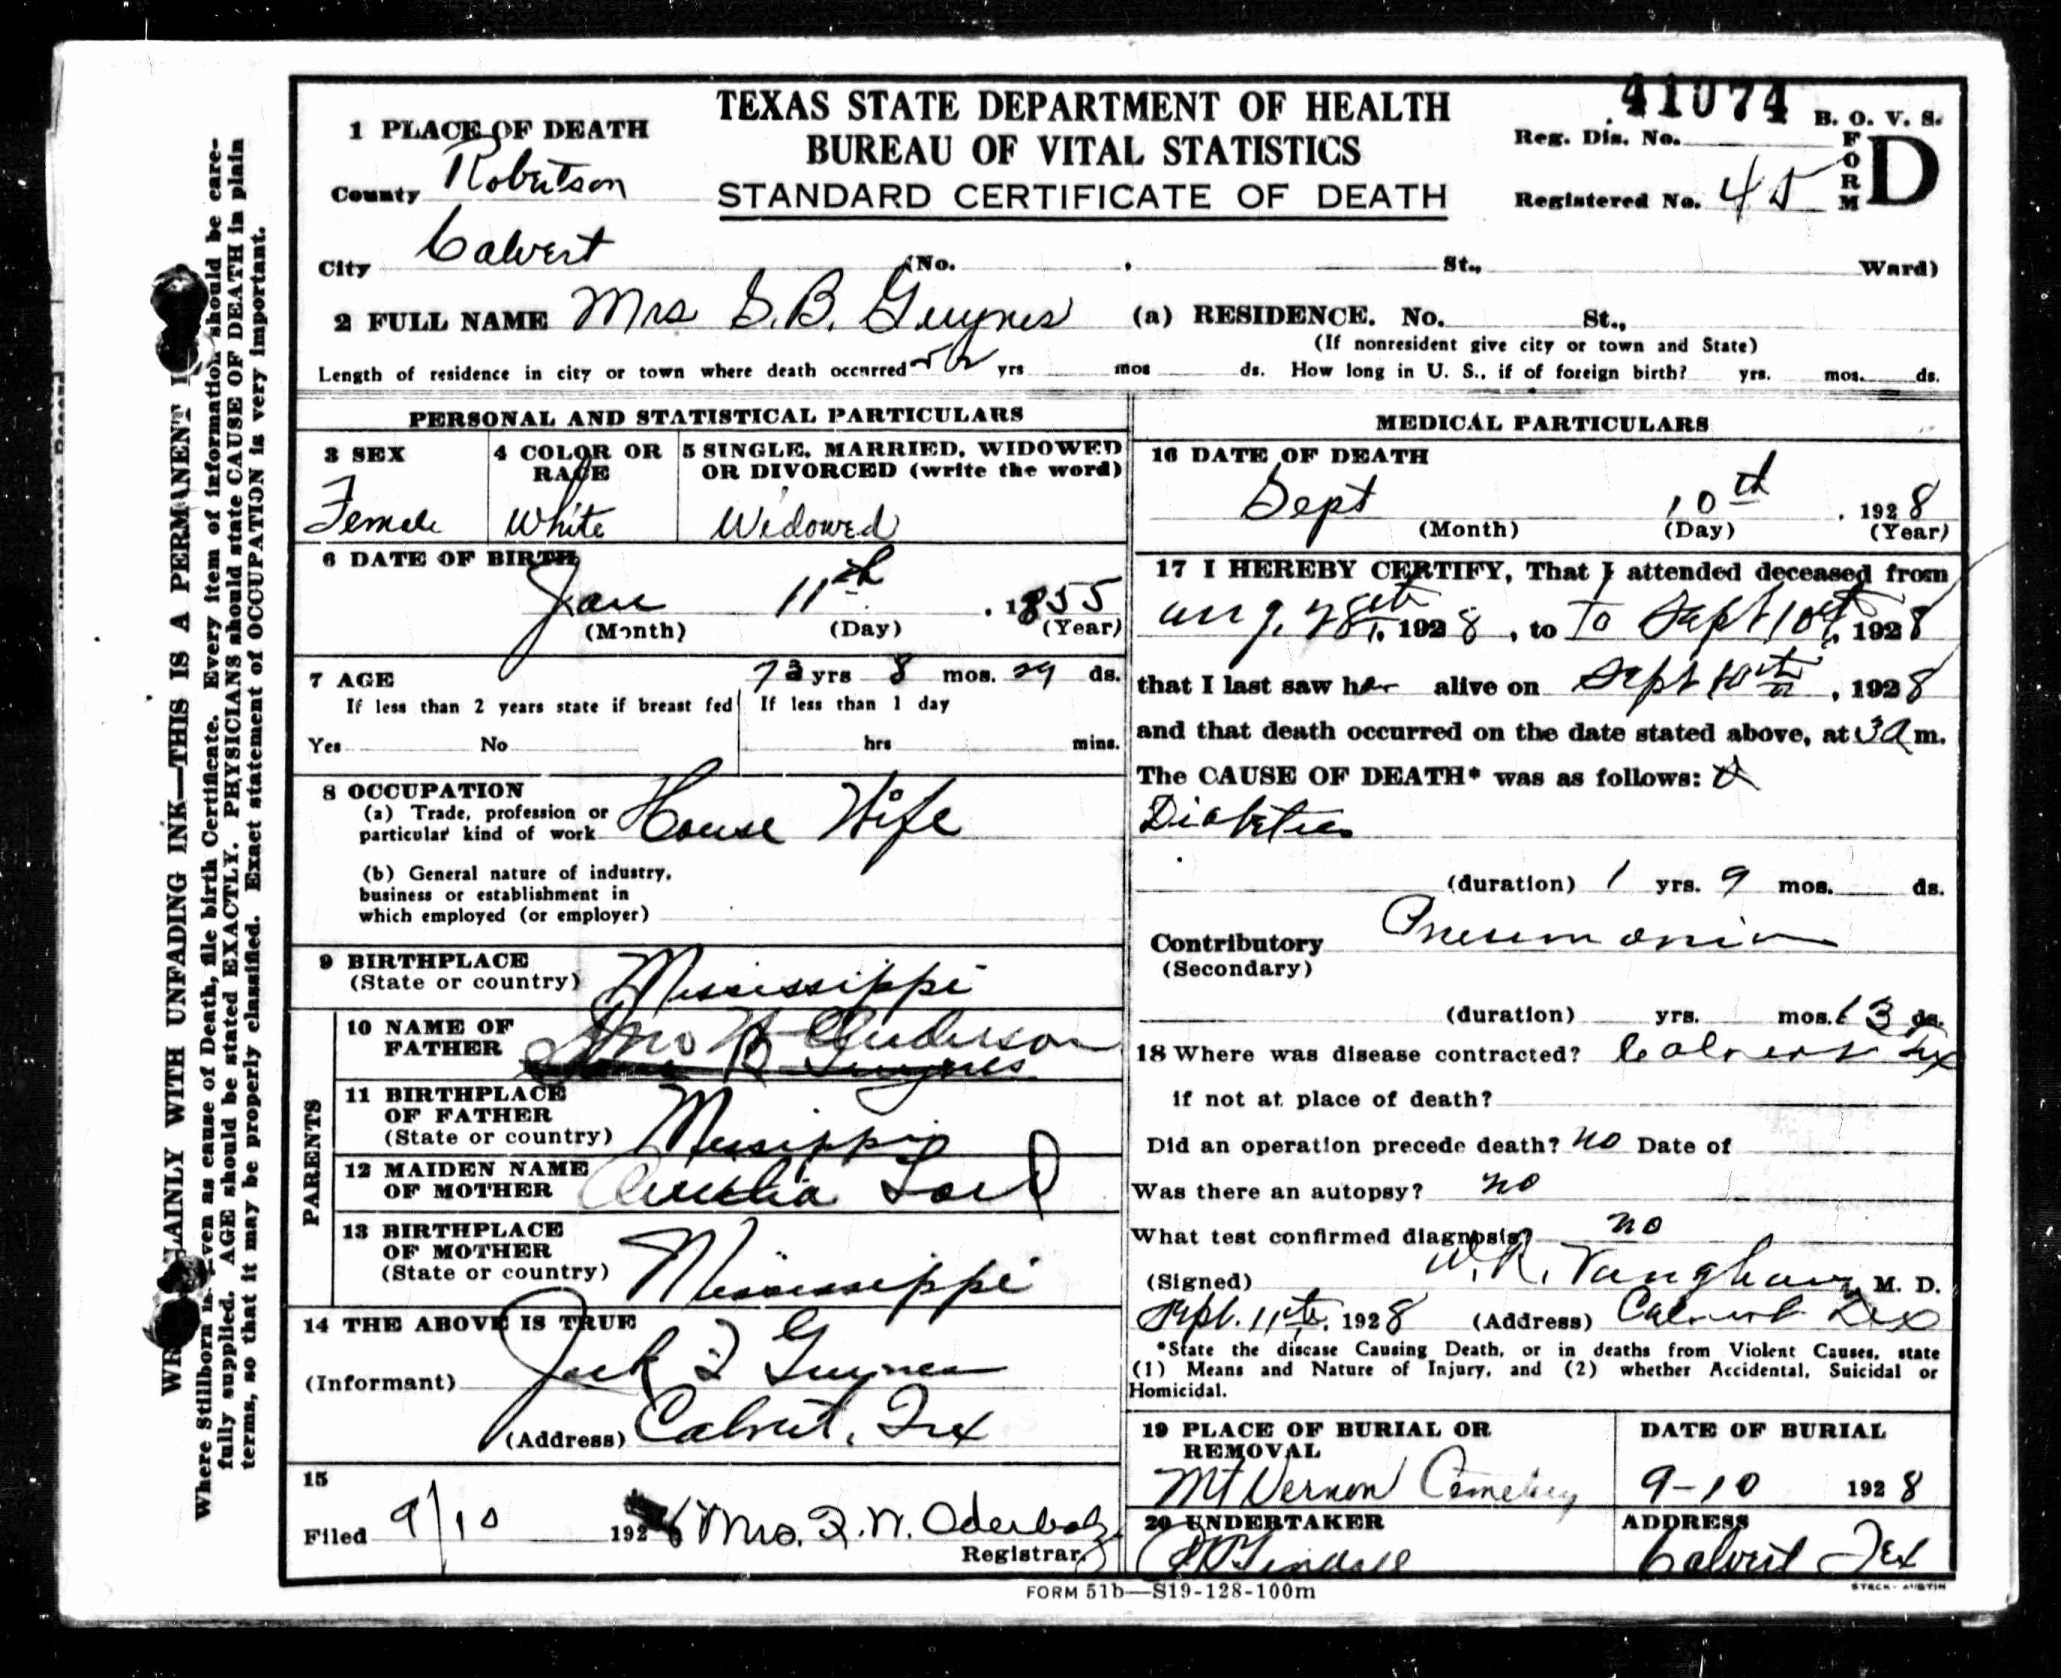 41074
TEXAS STATE DEPARTMENT OF HEALTH
BUREAU OF VITAL STATISTICS
STANDARD CERTIFICATE OF DEATH
B. O. V. S.
FORM D
Reg. Dis. No.
Registered No. 45
1 PLACE OF DEATH
County Robertson
City Calvert (No. St., Ward)
2 FULL NAME Mrs S. B. Guynes (a) RESIDENCE. No. St.,
(If nonresident give city or town and State)
Length of residence in city or town where death occurred yrs mos ds. How long in U. S., if of foreign birth? yrs. mos. ds.
PERSONAL AND STATISTICAL PARTICULARS
3 SEX
Female
4 COLOR OR RACE
White
5 SINGLE, MARRIED, WIDOWED
OR DIVORCED (write the word)
Widowed
6 DATE OF BIRTH
Jan 11th, 1855
(Month) (Day) (Year)
7 AGE 73 yrs 8 mos. 29 ds.
If less than 2 years state if breast fed If less than 1 day
Yes No hrs mins.
8 OCCUPATION
(a) Trade, profession or
particular kind of work House Wife
(b) General nature of industry,
business or establishment in
which employed (or employer)
9 BIRTHPLACE
(State or country) Mississippi
PARENTS
10 NAME OF
FATHER Jno W Anderson
11 BIRTHPLACE
OF FATHER
(State or country) Missippi
12 MAIDEN NAME
OF MOTHER
13 BIRTHPLACE
OF MOTHER
(State or country) Mississippi
14 THE ABOVE IS TRUE
(Informant) Jack Guynes
(Address) Calvert, Tex
15
Filed 9/10 192 Mrs. R. W. Oderbolz
Registrar.
MEDICAL PARTICULARS
16 DATE OF DEATH
Sept 10th, 1928
(Month) (Day) (Year)
17 I HEREBY CERTIFY, That I attended deceased from
Aug. 28th, 1928, to To Sept 10th, 1928
that I last saw her alive on Sept 10th, 1928
and that death occurred on the date stated above, at 3 A m.
The CAUSE OF DEATH* was as follows:
Diabetes
(duration) 1 yrs. 9 mos. ds.
Contributory Pneumonia
(Secondary)
(duration) yrs. mos. 13 ds.
18 Where was disease contracted? Calvert Tex
if not at place of death?
Did an operation precede death? no Date of
Was there an autopsy? no
What test confirmed diagnosis? no
(Signed) W. R. Vaughan, M. D.
Sept. 11th, 1928 (Address) Calvert Tex
*State the disease Causing Death, or in deaths from Violent Causes, state
(1) Means and Nature of Injury, and (2) whether Accidental, Suicidal or
Homicidal.
19 PLACE OF BURIAL OR
REMOVAL
Mt Vernon Cemetery
DATE OF BURIAL
9-10 1928
20 UNDERTAKER
ADDRESS
Calvert Tex
FORM 51b—S19-128-100m
STECK-AUSTIN
LAINLY WITH UNFADING INK—THIS IS A PERMANENT
Where Stillborn is given as cause of Death, file birth Certificate. Every item of information should be care-
fully supplied. AGE should be stated EXACTLY. PHYSICIANS should state CAUSE OF DEATH in plain
terms, so that it may be properly classified. Exact statement of OCCUPATION is very important.